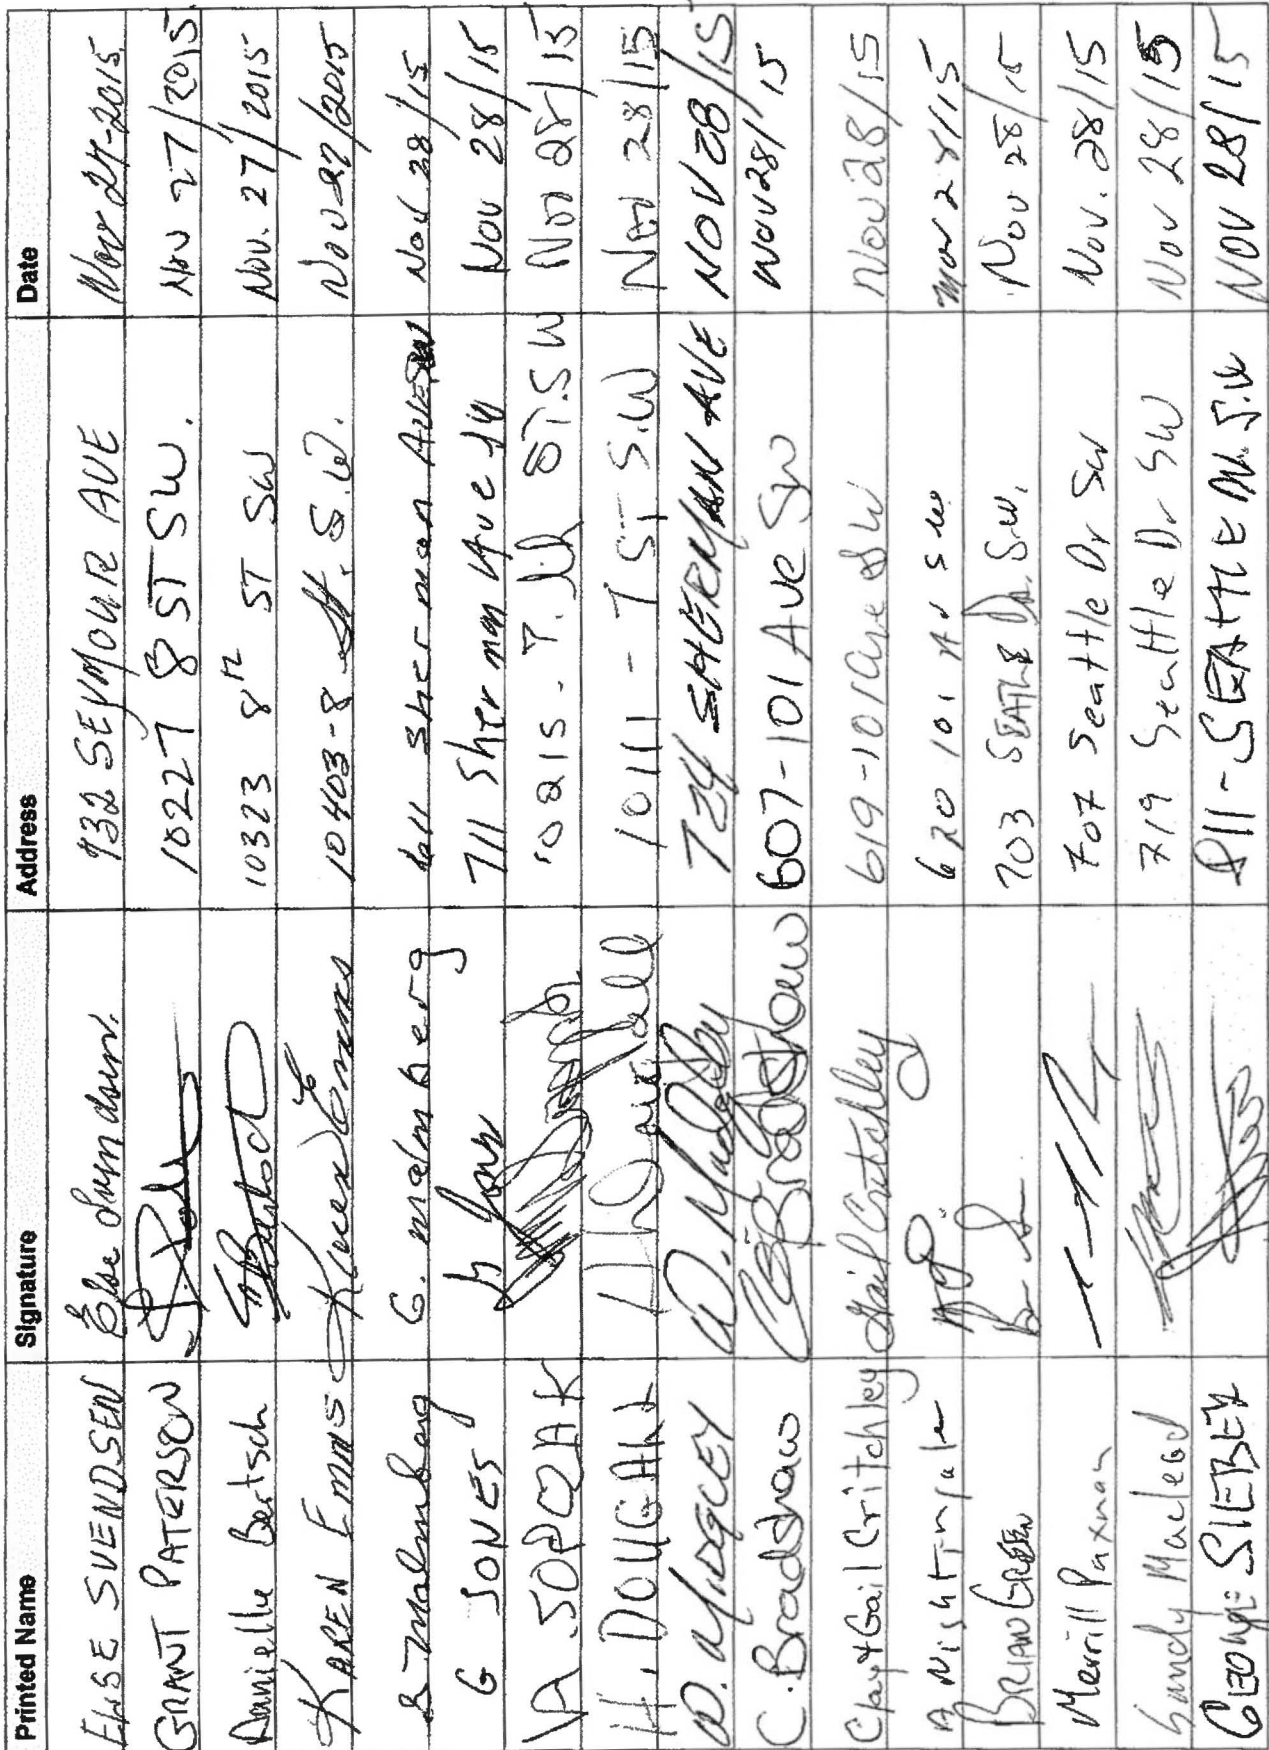 Printed Name Signature Address Date
ELSE SVENDSEN Else Svendsen. 932 SEYMOUR AVE Nov 27-2015
GRANT PATERSON 10227 8 ST SW. Nov 27/2015
Danielle Bertsch DBertsch 10323 8th ST SW Nov. 27/2015
KAREN EMMS Karen Emms 10403-8 St. S.W. Nov 27/2015
B Malmberg G. malmberg 611 Sherman Ave SW Nov 28/15
G JONES G Jones 711 Sherman Ave SW Nov 28/15
A SOPCZAK 10215 - 7th ST. SW Nov 28/15
H. DOUGALL H Dougall 10111 - 7 ST S.W Nov 28/15
W. MUDGLEY W. Mudgley 724 SHERMAN AVE NOV 28/15
C. Bradshaw CBradshaw 607-101 Ave SW Nov 28/15
Clay & Gail Critchley Gail Critchley 619-101 Ave SW Nov 28/15
A Nightingale 620 101 Av SW Nov 28/15
BRIAN GREEN 703 SEATTLE DR. S.W. Nov 28/15
Merrill Paxman 707 Seattle Dr SW Nov. 28/15
Sandy Macleod 719 Seattle Dr SW Nov 28/15
GEORGE SIEBER 811-SEATTLE DR. S.W NOV 28/15